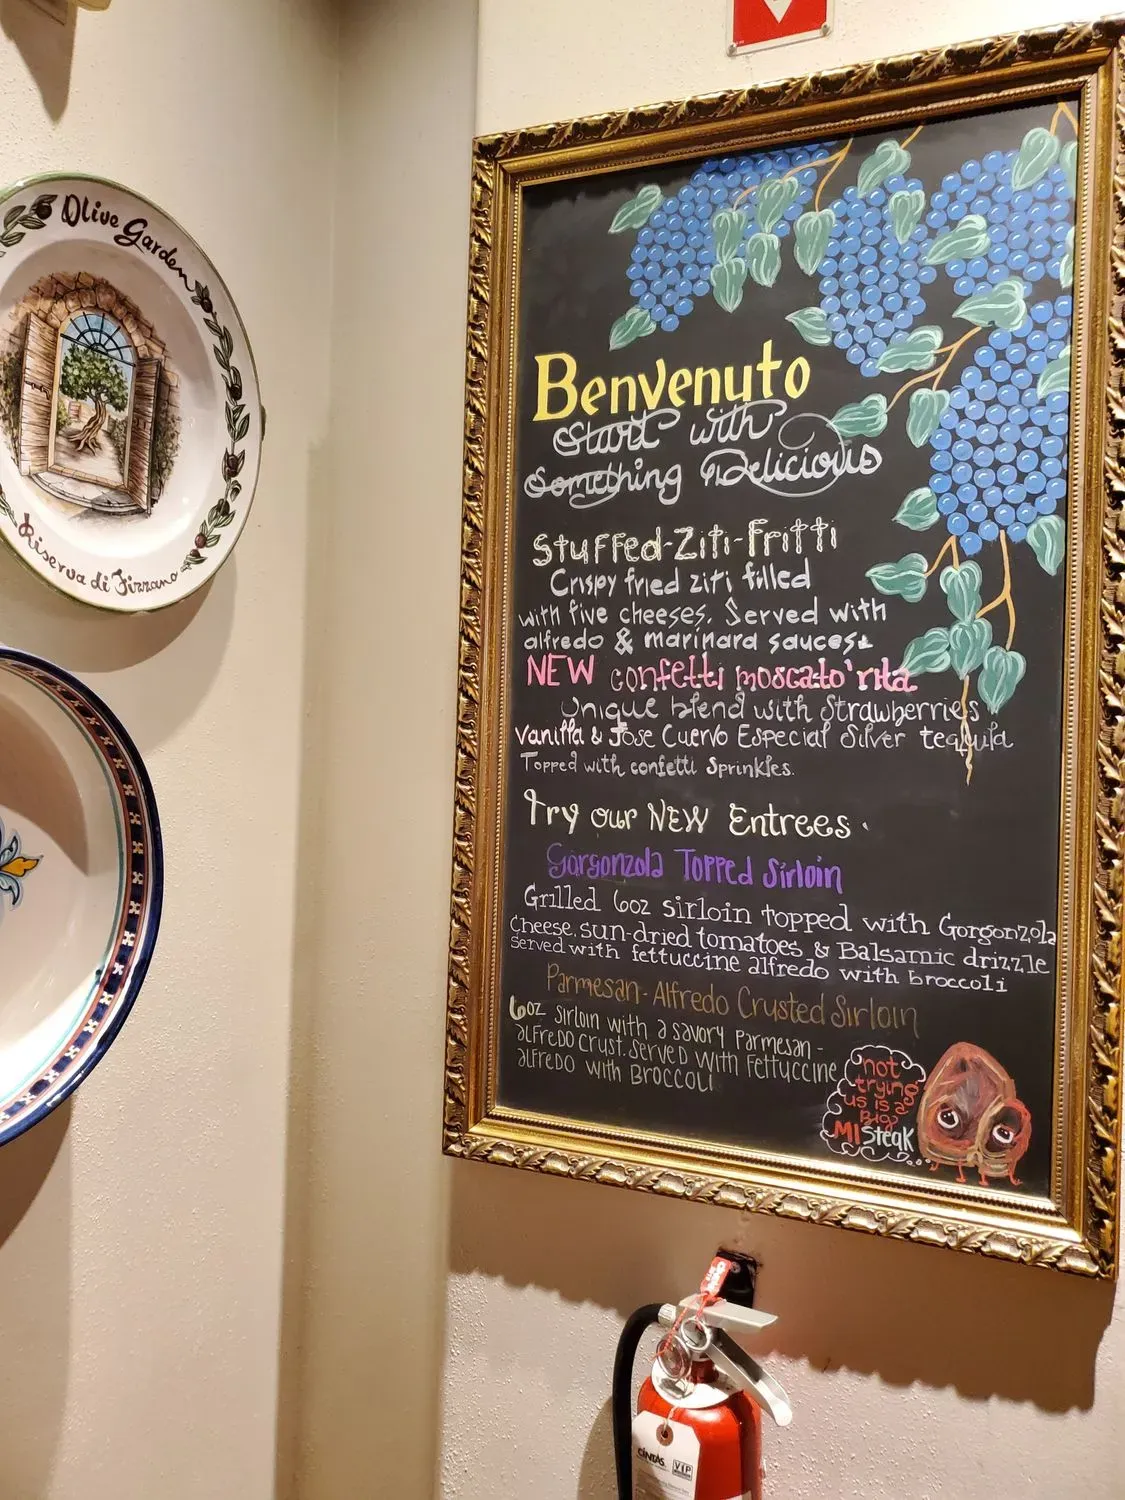 Olive Garden
Riserva di Fizzano
Benvenuto
Start with
Something Delicious
Stuffed-Ziti-Fritti
Crispy fried ziti filled
with five cheeses. Served with
alfredo & marinara sauces
NEW confetti moscato'rita
Unique blend with Strawberries
vanilla & Jose Cuervo Especial Silver tequila
Topped with confetti Sprinkles.
Try our NEW Entrees.
Gorgonzola Topped Sirloin
Grilled 6oz sirloin topped with Gorgonzola
Cheese, sun-dried tomatoes & Balsamic drizzle
served with fettuccine alfredo with broccoli
Parmesan-Alfredo Crusted Sirloin
6oz sirloin with a savory Parmesan-
alfredo crust. Served with Fettuccine
alfredo with Broccoli
not
trying
us is a
Big
MISteak
CINTAS
VIP